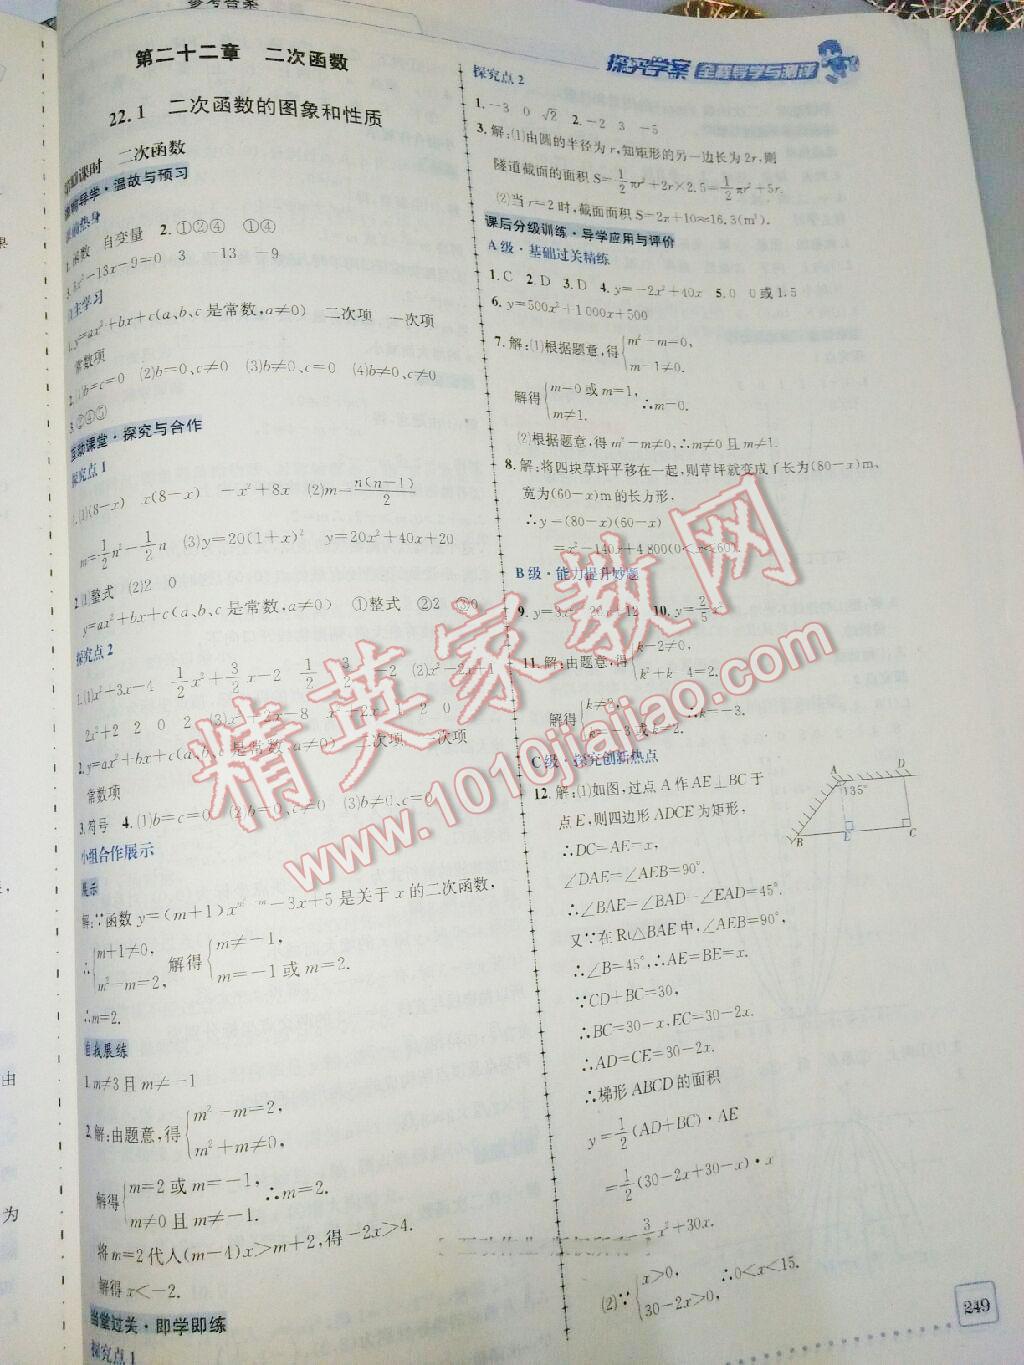 参考答案
第二十二章 二次函数
22.1 二次函数的图象和性质
课时 二次函数
导学·温故与预习
热身
1.函数 自变量 2.①②④ ①④
3.3x²-13x-9=0 3 -13 -9
自主学习
1.y=ax²+bx+c(a、b、c是常数,a≠0) 二次项 一次项
常数项
2.(1)b=c=0 (2)b=0,c≠0 (3)b≠0,c=0 (4)b≠0,c≠0
3.②④⑤
互动课堂·探究与合作
探究点1
1.(1)(8-x) x(8-x) -x²+8x (2)m=n(n-1)/2
m=1/2n²-1/2n (3)y=20(1+x)² y=20x²+40x+20
2.(1)整式 (2)2 0
y=ax²+bx+c(a、b、c是常数,a≠0) ①整式 ②2 ③0
探究点2
1.(1)x²+3x-4 1/2x²+3/2x-2 1/2 3/2 -2 (2)x²-2x+1
2x²+2 2 0 2 (3)x²+2x-8 x²+2x 1 2 0
2.y=ax²+bx+c(a、b、c是常数,a≠0) 二次项 一次项
常数项
3.符号 4.(1)b=c=0 (2)b=0,c≠0 (3)b≠0,c=0
小组合作展示
展示
解:∵函数y=(m+1)x^(m²-m)-3x+5是关于x的二次函数,
∴{m+1≠0, m²-m=2, 解得{m≠-1, m=-1或m=2.
∴m=2.
自我展练
1.m≠3且m≠-1
2.解:由题意,得{m²-m=2, m²+m≠0,
解得{m=2或m=-1, m≠0且m≠-1. ∴m=2.
将m=2代入(m-4)x>m+2,得-2x>4.
解得x<-2.
当堂过关·即学即练
探究点1
探究学案 全程导学与测评
探究点2
1.-3 0 √2 2.-2 3 -5
3.解:(1)由圆的半径为r,知矩形的另一边长为2r,则
隧道截面的面积S=1/2πr²+2r×2.5=1/2πr²+5r.
(2)当r=2时,截面面积S=2π+10≈16.3(m²).
课后分级训练·导学应用与评价
A级·基础过关精练
1.C 2.D 3.D 4.y=-2x²+40x 5.0 0或1.5
6.y=500x²+1000x+500
7.解:(1)根据题意,得{m²-m=0, m-1≠0.
解得{m=0或m=1, m≠1. ∴m=0.
(2)根据题意,得m²-m≠0,∴m≠0且m≠1.
8.解:将四块草坪平移在一起,则草坪就变成了长为(80-x)m、
宽为(60-x)m的长方形.
∴y=(80-x)(60-x)
=x²-140x+4800(0<x<60).
B级·能力提升妙题
9. 10.y=2/5x²
11.解:由题意,得{k-2≠0, k²+k-4=2.
解得{k≠2, k=-3或k=2. ∴k=-3.
C级·探究创新热点
12.解:(1)如图,过点A作AE⊥BC于
点E,则四边形ADCE为矩形,
∴DC=AE=x,
∠DAE=∠AEB=90°.
∴∠BAE=∠BAD-∠EAD=45°.
又∵在Rt△BAE中,∠AEB=90°,
∴∠B=45°,∴AE=BE=x.
∵CD+BC=30,
∴BC=30-x,EC=30-2x.
∴AD=CE=30-2x.
∴梯形ABCD的面积
y=1/2(AD+BC)·AE
=1/2(30-2x+30-x)·x
=-3/2x²+30x.
(2)∵{x>0, 30-2x>0, ∴0<x<15.
A D
135°
B E C
精英家教网
www.1010jiajiao.com
249
果
由
为